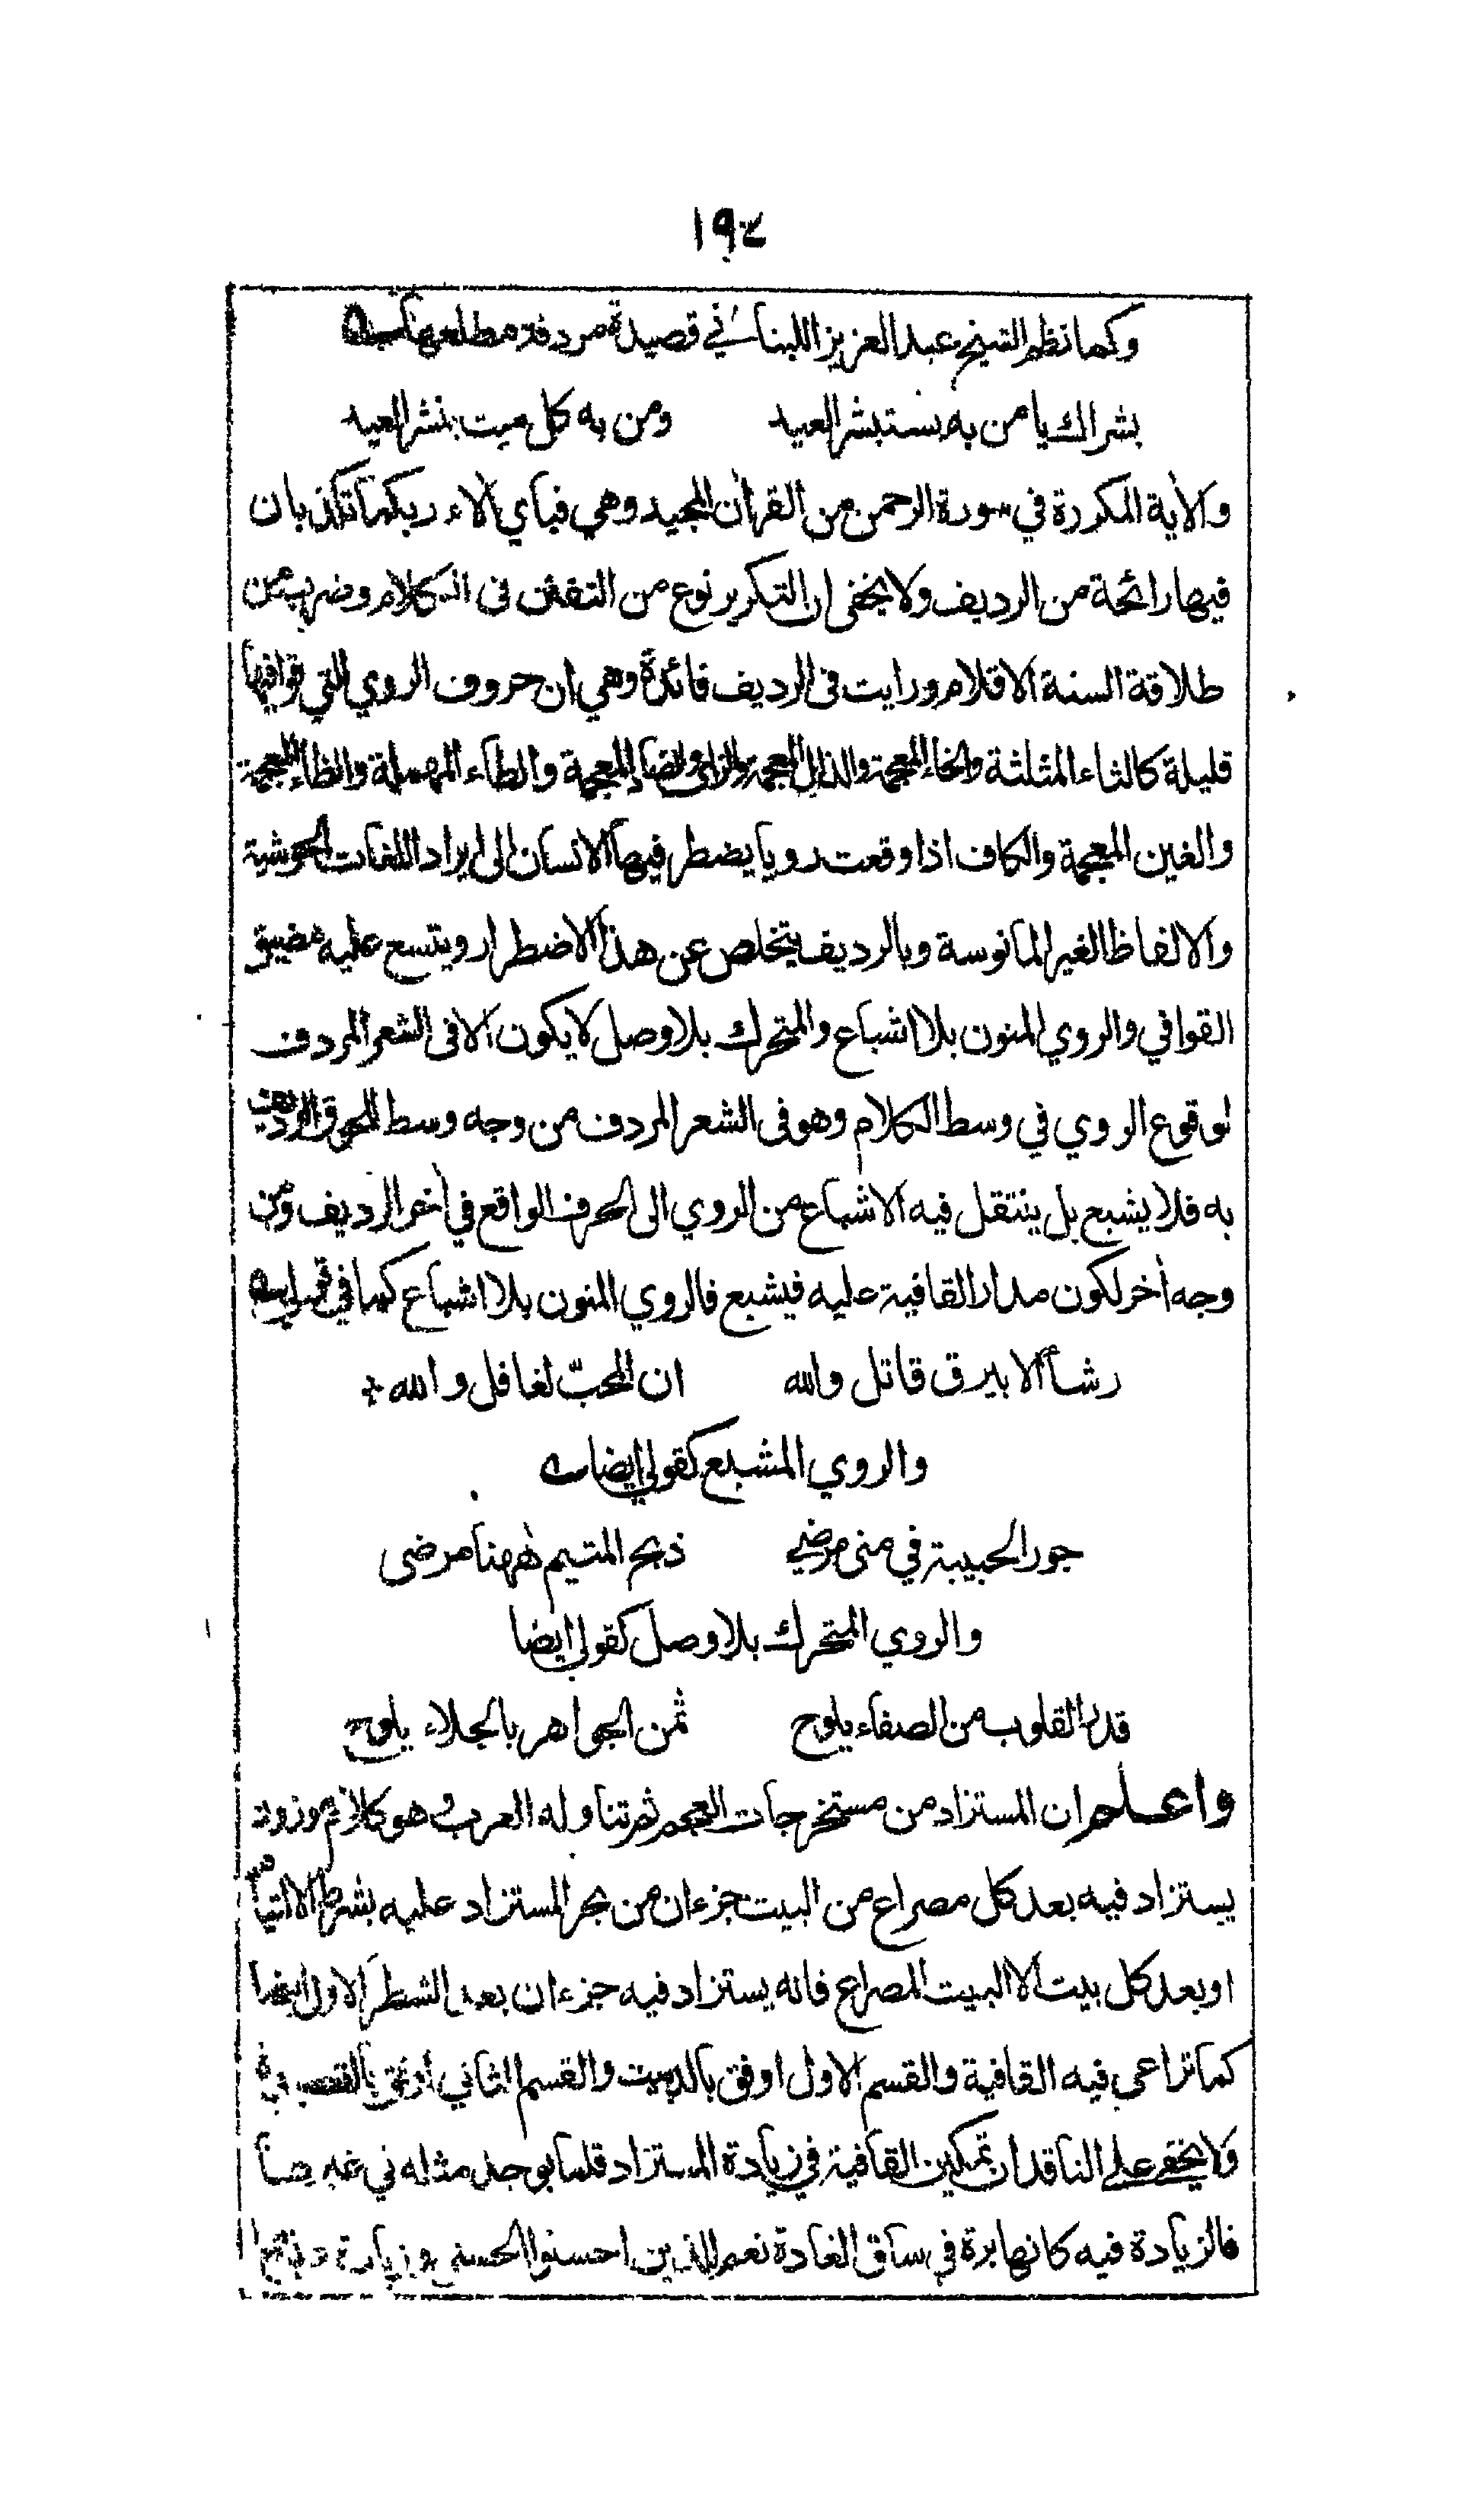 ١٩٤
وكما نظم الشيخ عبد العزيز اللبناني في قصيدة مردفة مطلعها
بشراك يا من به يستبشر العيد ومن به كل ميت ينشر العيد
والأية المكررة في سورة الرحمن من القرأن المجيد وهي فباي الاء ربكما تكذبان
فيها رائحة من الرديف ولا يخفى ان التكرير نوع من التفنن فى الكلام وضرب من
طلاقة السنة الاقلام ورايت فى الرديف فائدة وهي ان حروف الروي التي قوافيها
قليلة كالثاء المثلثة والخاء المعجمة والذال المعجمة والزاى والضاد المعجمة والطاء المهملة والظاء المعجمة
والغين المعجمة والكاف اذا وقعت رويا يضطر فيها الانسان الى ايراد اللغات الحوشية
والالفاظ الغير المانوسة وبالرديف يتخلص عن هذا الاضطرار ويتسع عليه مضيق
القوافي والروي المنون بلا اشباع والمتحرك بلا وصل لا يكون الا فى الشعر المردف
لوقوع الروي في وسط الكلام وهو فى الشعر المردف من وجه وسط للحوق الرديف
به فلا يشبع بل ينتقل فيه الاشباع من الروي الى الحرف الواقع في أخر الرديف ومن
وجه أخر لكون مدار القافية عليه فيشبع فالروي المنون بلا اشباع كما في قولي
رشأ الابيرق قاتل والله ان المحبّ لغافل والله
والروي المشبع كقولي ايضا
جور الحبيبة في منى مرضي ذبح المتيم ههنا مرضى
والروي المتحرك بلا وصل كقولي ايضا
قدر القلوب من الصفاء يلوح ثمن الجواهر بالجلاء يلوح
واعلم ان المستزاد من مستخرجات العجم ثم تناوله العرب هو كلام موزون
يستزاد فيه بعد كل مصراع من البيت جزءان من بحر المستزاد عليه بشرط الالتيام
او بعد كل بيت الا البيت المصراع فانه يستزاد فيه جزءان بعد الشطر الاول ايضا
كما تراعى فيه القافية والقسم الاول اوفق بالبيت والقسم الثاني اوفق بالقصيدة
ولا يخفى على الناقد ان تمكين القافية في زيادة المستزاد قلما يوجد مثله في غيرها
فالزيادة فيه كانها برة في ساق الغادة نعم للذين احسنوا الحسنى وزيادة